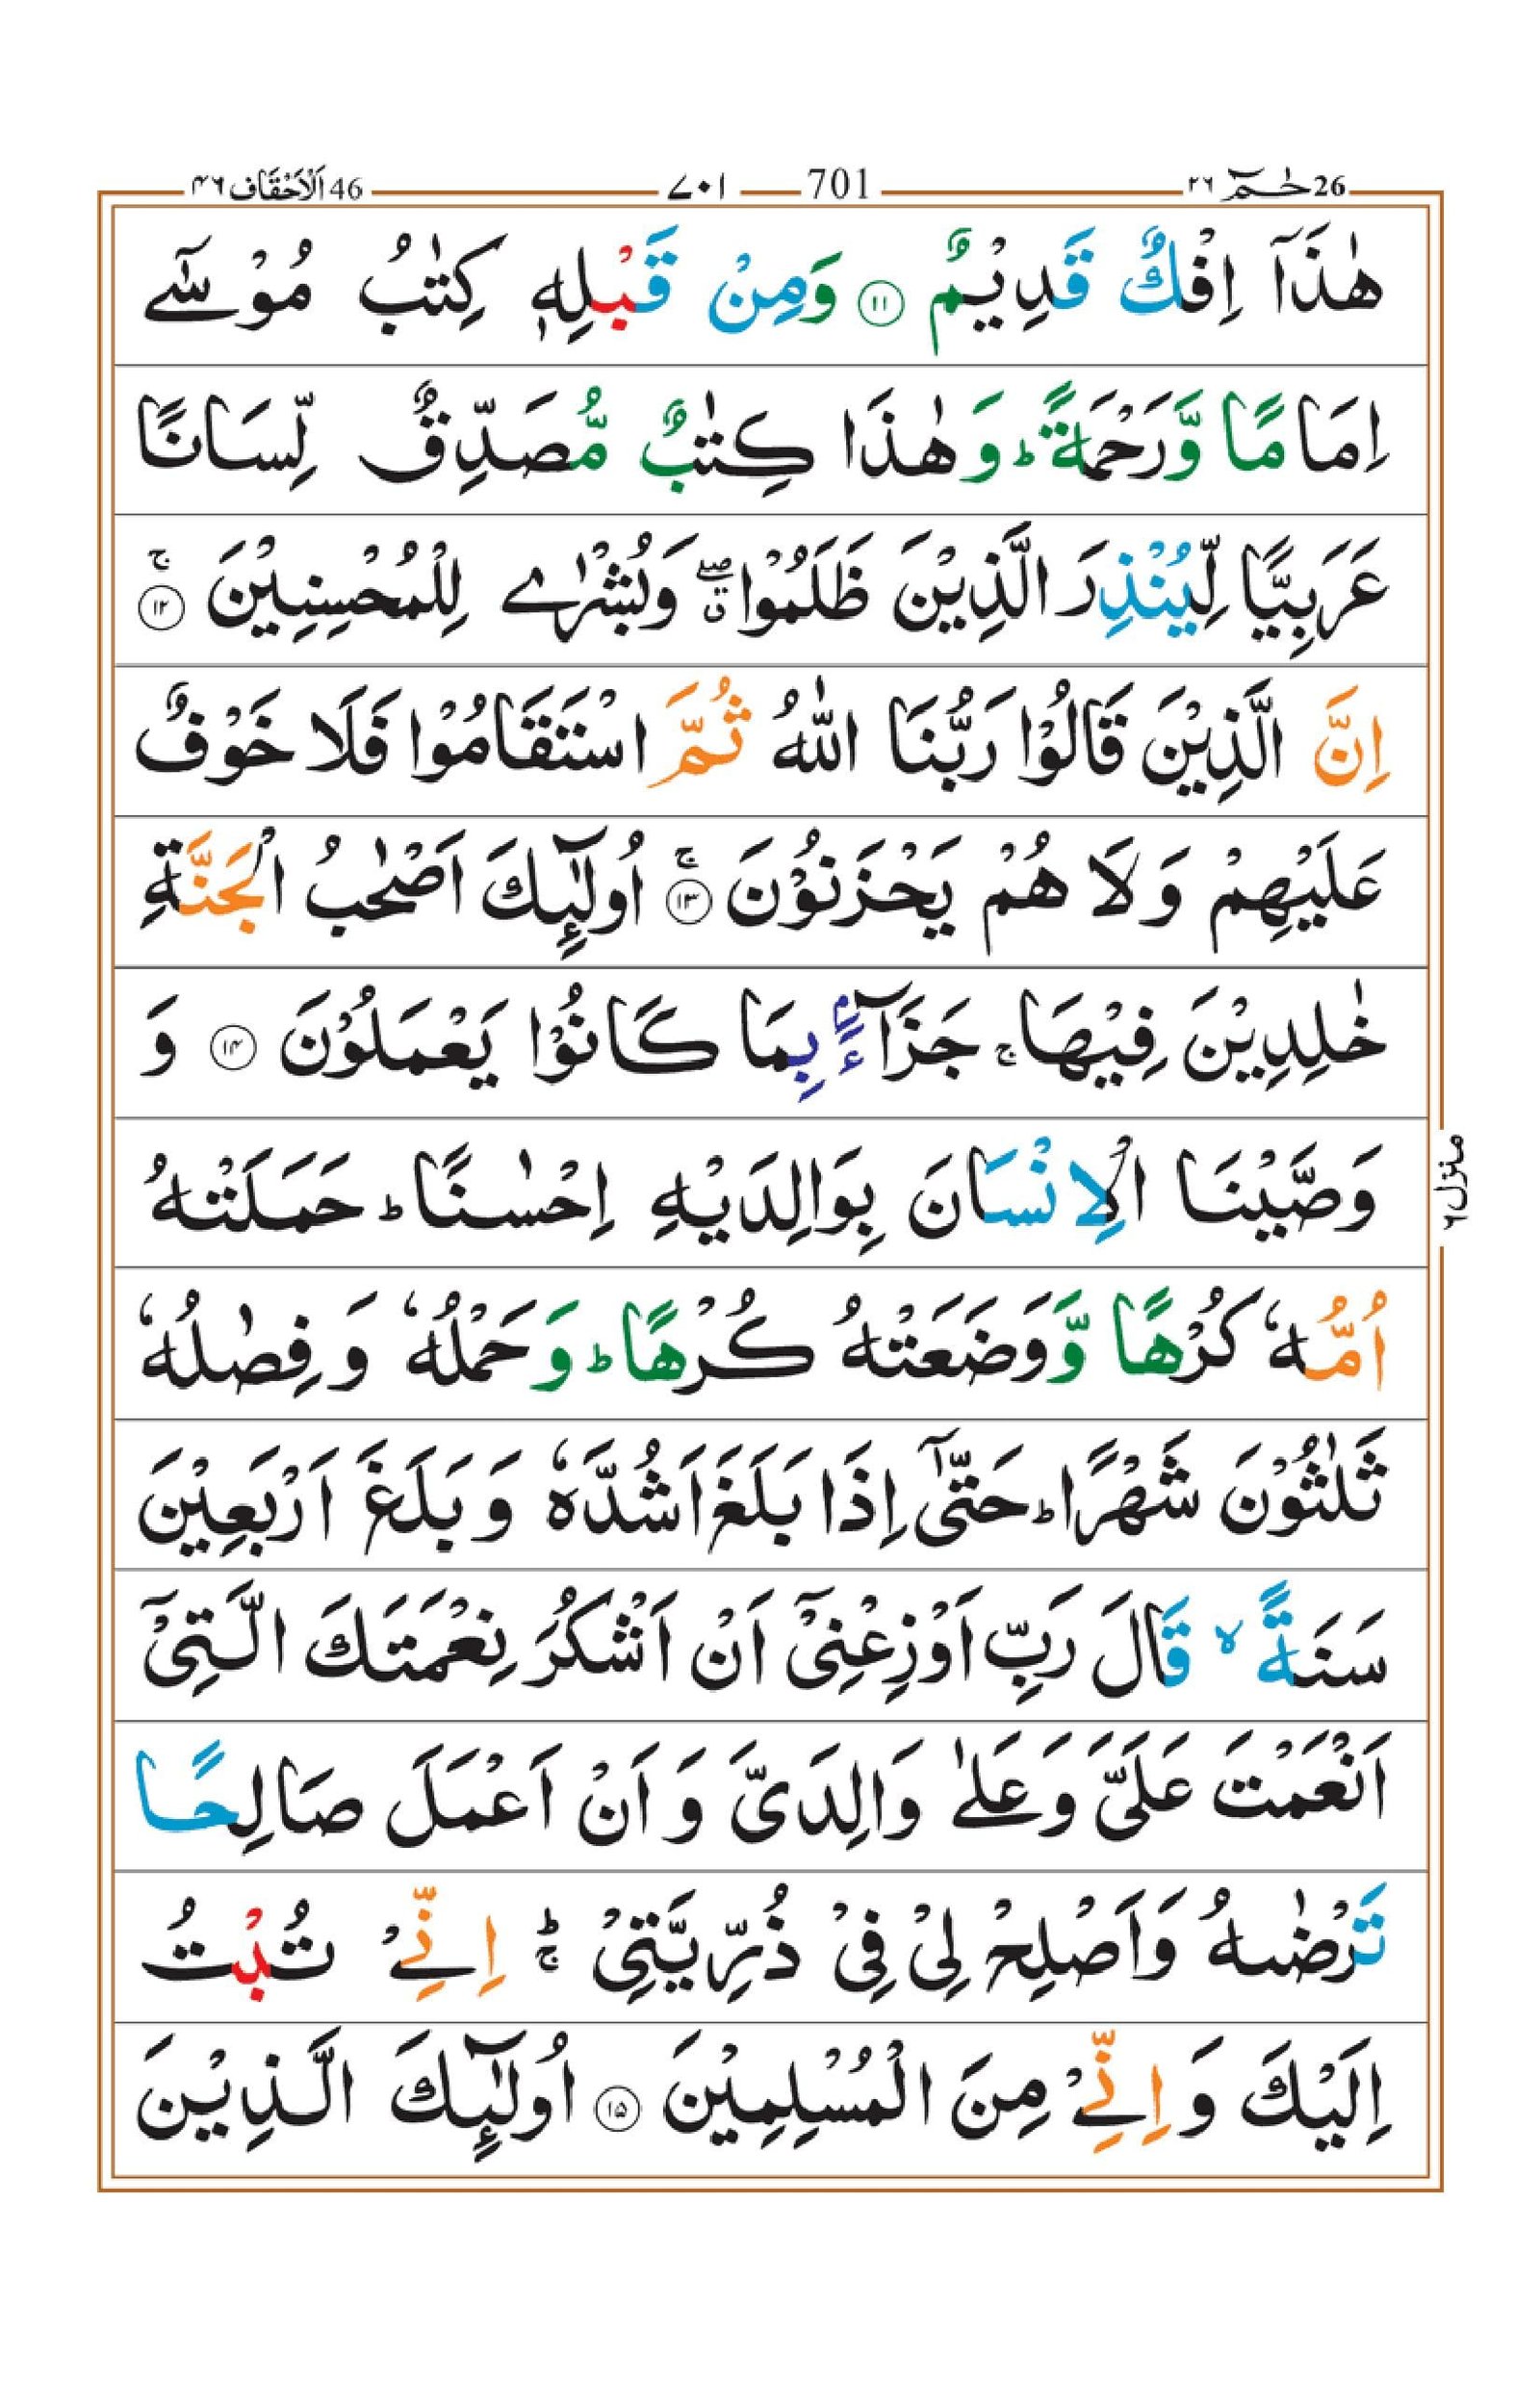 26 حٰمٓ ٢٦ 701 ٧٠١ 46 اَلْاَحْقَاف ٤٦
هٰذَاۤ اِفْكٌ قَدِيْمٌ ۝١١ وَمِنْ قَبْلِهٖ كِتٰبُ مُوْسٰۤى
اِمَامًا وَّرَحْمَةً ؕ وَهٰذَا كِتٰبٌ مُّصَدِّقٌ لِّسَانًا
عَرَبِيًّا لِّيُنْذِرَ الَّذِيْنَ ظَلَمُوْا ۖۗ وَبُشْرٰى لِلْمُحْسِنِيْنَ ۚ۝١٢
اِنَّ الَّذِيْنَ قَالُوْا رَبُّنَا اللّٰهُ ثُمَّ اسْتَقَامُوْا فَلَا خَوْفٌ
عَلَيْهِمْ وَلَا هُمْ يَحْزَنُوْنَ ۚ۝١٣ اُولٰٓئِكَ اَصْحٰبُ الْجَنَّةِ
خٰلِدِيْنَ فِيْهَا ۚ جَزَآءًۢ بِمَا كَانُوْا يَعْمَلُوْنَ ۝١٤ وَ
وَصَّيْنَا الْاِنْسَانَ بِوَالِدَيْهِ اِحْسٰنًا ؕ حَمَلَتْهُ
اُمُّهٗ كُرْهًا وَّوَضَعَتْهُ كُرْهًا ؕ وَحَمْلُهٗ وَفِصٰلُهٗ
ثَلٰثُوْنَ شَهْرًا ؕ حَتّٰۤى اِذَا بَلَغَ اَشُدَّهٗ وَبَلَغَ اَرْبَعِيْنَ
سَنَةً ۙ قَالَ رَبِّ اَوْزِعْنِيْۤ اَنْ اَشْكُرَ نِعْمَتَكَ الَّتِيْۤ
اَنْعَمْتَ عَلَيَّ وَعَلٰى وَالِدَيَّ وَاَنْ اَعْمَلَ صَالِحًا
تَرْضٰىهُ وَاَصْلِحْ لِيْ فِيْ ذُرِّيَّتِيْ ؕۚ اِنِّيْ تُبْتُ
اِلَيْكَ وَاِنِّيْ مِنَ الْمُسْلِمِيْنَ ۝١٥ اُولٰٓئِكَ الَّذِيْنَ
منزل ٦